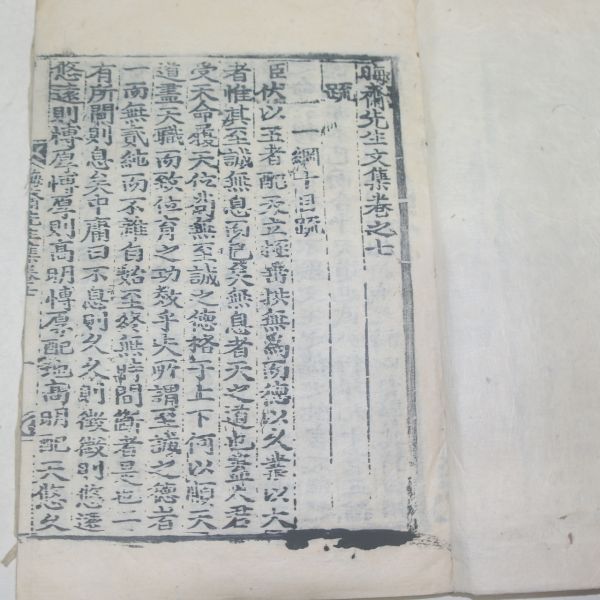 晦齋先生文集卷之七
疏
一綱十目疏
臣伏以王者配天立極垂拱無爲而德以久業以大
者惟其至誠無息而已矣無息者天之道也蓋人君
受天命履天位苟無至誠之德格于上下何以順天
道盡天職而致位育之功效乎夫所謂至誠之德者
一而無貳純而不雜自始至終無時間斷者是也一
有所間則息矣中庸曰不息則久久則徵徵則悠遠
悠遠則博厚博厚則高明博厚配地高明配天悠久
晦齋先生集卷七